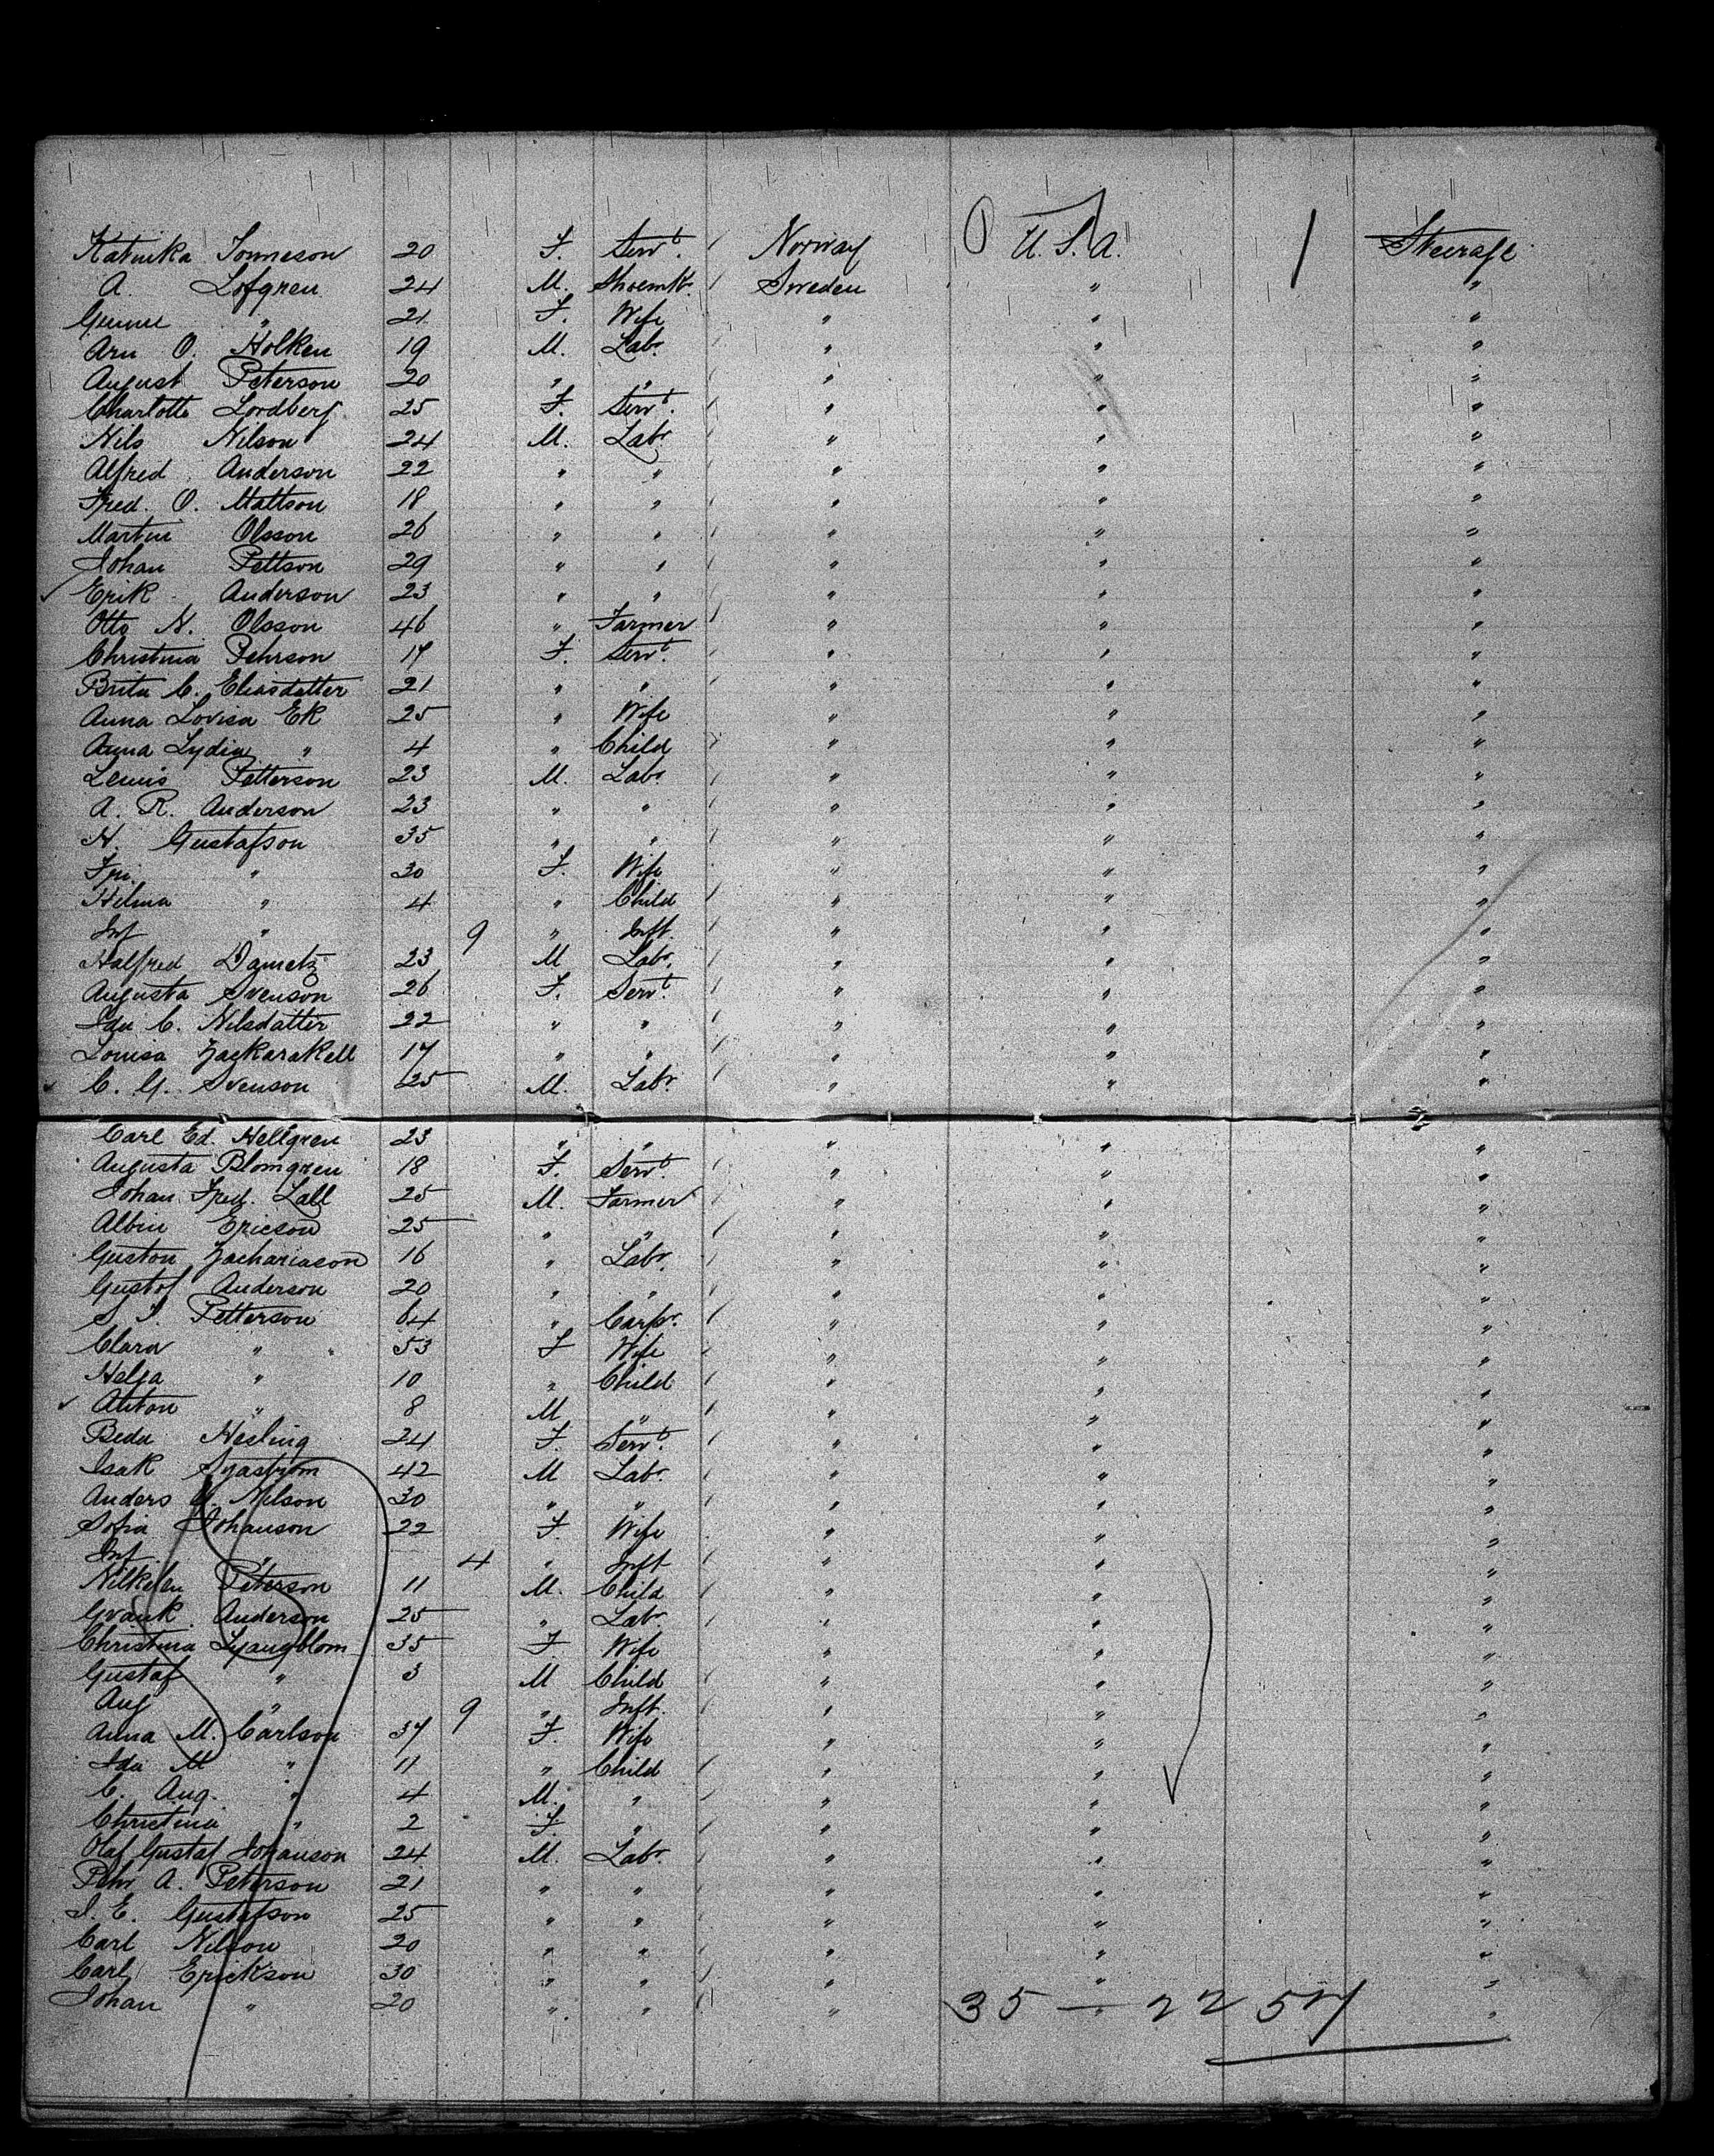 Katinka Tonneson 20 F. Servt. Norway U.S.A. 1 Steerage
A. Lofgren 24 M. Shoemkr. Sweden " "
" 21 F. Wife " " "
Arn O. Holken 19 M. Labr. " " "
August Peterson 20 " " " " "
Charlotte Lordberg 25 F. Servt. " " "
Nils Nilson 24 M. Labr " " "
Alfred Anderson 22 " " " " "
Fred. O. Mattson 18 " " " " "
Martin Olsson 26 " " " " "
Johan Pettson 29 " " " " "
Erik Anderson 23 " " " " "
Otto N. Olsson 46 " Farmer " " "
Christina Pehrson 17 F. Servt. " " "
Brita C. Eliasdatter 21 " " " " "
Anna Lovisa Ek 25 " Wife " " "
Anna Lydia " 4 " Child " " "
Lewis Petterson 23 M. Labr " " "
A. R. Anderson 23 " " " " "
N. Gustafson 35 " " " " "
" 30 F. Wife " " "
Hilma " 4 " Child " " "
Inf " 9 " Inft. " " "
Halfred Dametz 23 M Labr. " " "
Augusta Svenson 26 F. Servt. " " "
Ida C. Nilsdatter 22 " " " " "
Lovisa Zackarakell 17 " " " " "
C. G. Svenson 25 M. Labr. " " "
Carl Ed. Hellgren 23 " " " " "
Augusta Blomgren 18 F. Servt. " " "
Johan Fred. Lall 25 M. Farmer " " "
Albin Ericson 25 " " " " "
Guston Zachariason 16 " Labr. " " "
Gustof Anderson 20 " " " " "
S. J. Petterson 64 " Carpr. " " "
Clara " 53 F Wife " " "
Helga " 10 " Child " " "
Anton " 8 M " " " "
Beda Hesling 24 F. Servt. " " "
Isak Sjastrom 42 M Labr. " " "
Anders G. Nilson 30 " " " " "
Sofia Johanson 22 F. Wife " " "
Inf. " 4 " Inft " " "
Peterson 11 M. Child " " "
Anderson 25 " Labr. " " "
Christina Ljangblom 35 F Wife " " "
Gustaf " 3 M Child " " "
Aug " 9 " Inft. " " "
Anna M. Carlson 37 F. Wife " " "
Ida M " 11 " Child " " "
C. Aug. " 4 M. " " " "
Christina " 2 F. " " " "
Olaf Gustaf Johanson 24 M. Labr. " " "
Pehr A. Peterson 21 " " " " "
J. E. Gustafson 25 " " " " "
Carl Nilson 20 " " " " "
Carl Erickson 30 " " " " "
Johan " 20 " " " "
35 — 22 57